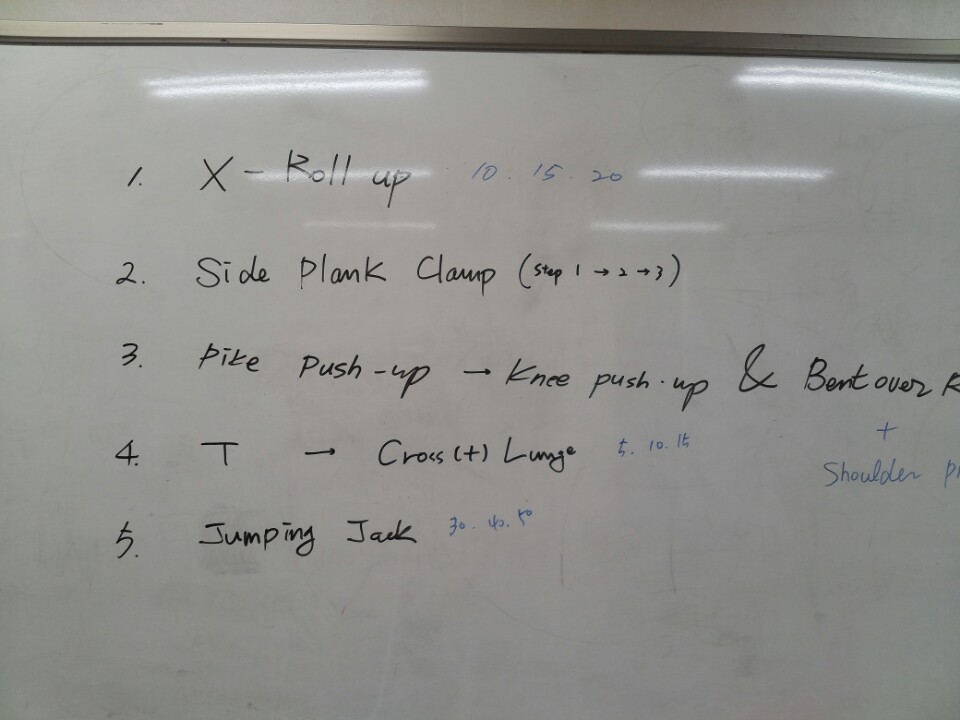 1. X - Roll up 10. 15. 20
2. Side Plank Clamp (Step 1 → 2 → 3)
3. Pike Push-up → Knee push-up & Bent over R
+
Shoulder
4. T → Cross(+) Lunge 5. 10. 15
5. Jumping Jack 30. 40. 50